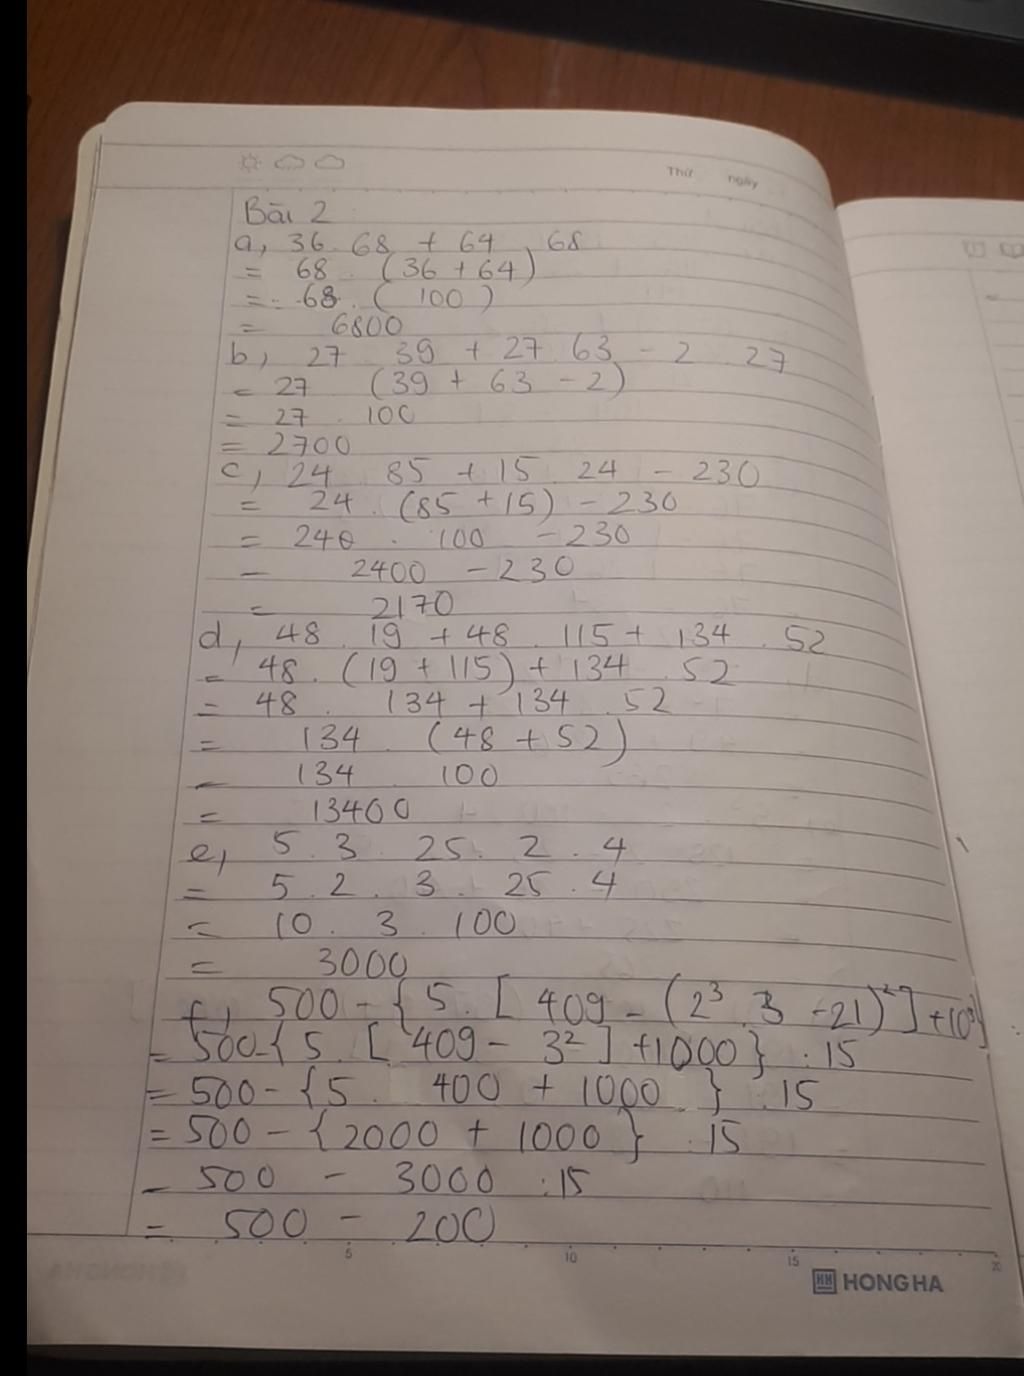 Thứ ngày
Bài 2
a, 36. 68 + 64 . 68
= 68 . (36 + 64)
= 68 . ( 100 )
= 6800
b, 27 39 + 27 63 - 2 27
= 27 (39 + 63 - 2)
= 27 . 100
= 2700
c, 24 85 + 15 24 - 230
= 24 . (85 + 15) - 230
= 240 . 100 - 230
= 2400 - 230
= 2170
d, 48 . 19 + 48 . 115 + 134 . 52
= 48 . (19 + 115) + 134 52
= 48 . 134 + 134 . 52
= 134 (48 + 52)
= 134 100
= 13400
e, 5 . 3 25 . 2 . 4
= 5 . 2 . 3 . 25 . 4
= 10 . 3 . 100
= 3000
f, 500 - { 5 . [ 409 - (2³ . 3 - 21)² ] + 10³ } :
= 500 - { 5 . [ 409 - 3² ] + 1000 } : 15
= 500 - { 5 . 400 + 1000 } . 15
= 500 - { 2000 + 1000 } . 15
= 500 - 3000 : 15
= 500 - 200
5 10 15 20
HH HONG HA